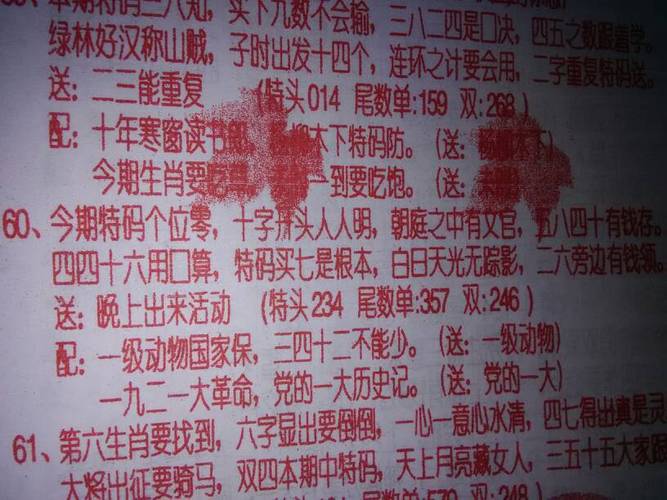 本期特码三八知，买下九数不会输，三八二四是口决，四五之数跟着学。
绿林好汉称山贼，子时出发十四个，连环之计要会用，二字重复特码送。
送：二三能重复 （特头014 尾数单:159 双:268）
配：十年寒窗读书 柳木下特码防。（送： 下）
今期生肖要 一到要吃饱。（送：
60、今期特码个位零，十字开头人人明，朝庭之中有文官，五八四十有钱存。
四四十六用口算，特码买七是根本，白日天光无踪影，二六旁边有钱领。
送：晚上出来活动 （特头234 尾数单:357 双:246）
配：一级动物国家保，三四十二不能少。（送：一级动物）
一九二一大革命，党的一大历史记。（送：党的一大）
61、第六生肖要找到，六字显出要倒倒，一心一意心水清，四七得出真是灵
大将出征要骑马，双四本期中特码，天上月亮藏女人，三五十五大家